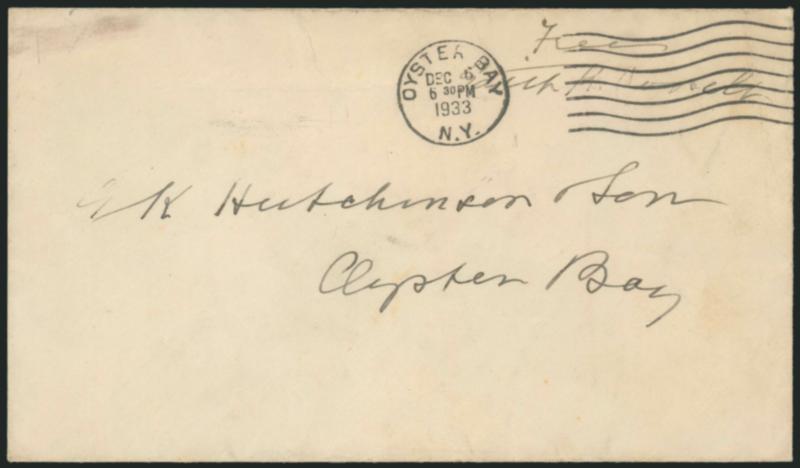 Free
Edith K. Roosevelt
OYSTER BAY
DEC 6
6 30 PM
1933
N.Y.
K Hutchinson & Son
Oyster Bay